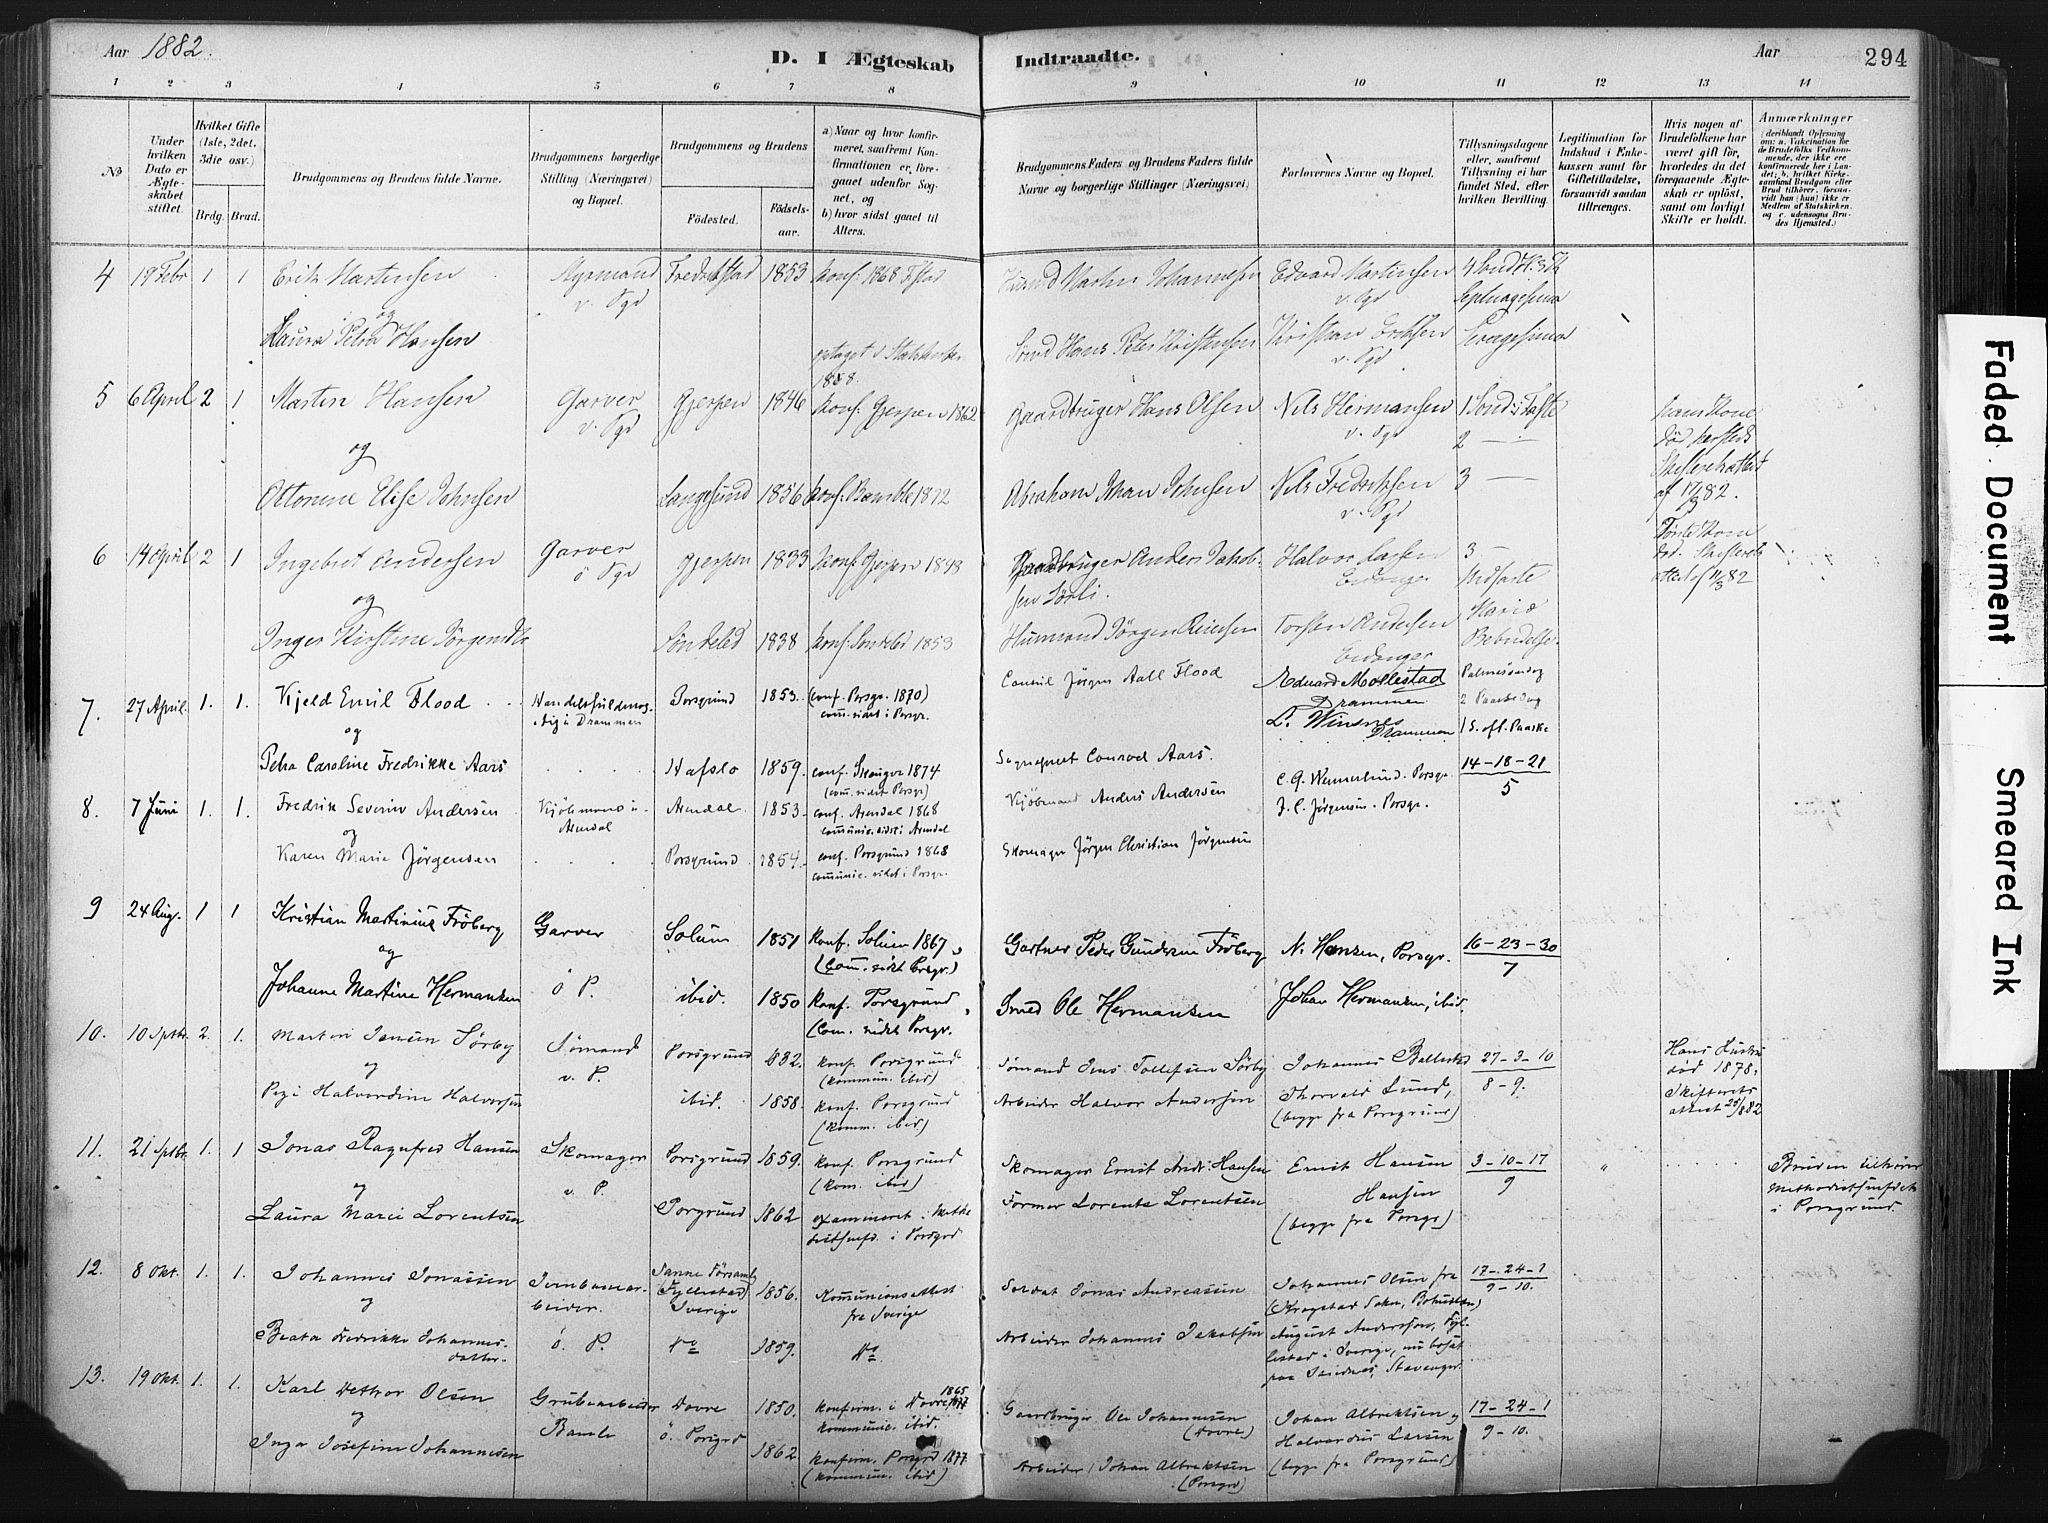 Aar 1882.
D. I Ægteskab Indtraadte.
Aar
294
1 2 3 4 5 6 7 8 9 10 11 12 13 14
No
Under hvilken Dato er Ægteskabet stiftet.
Hvilket Gifte (1ste, 2det, 3die osv.)
Brdg. Brud.
Brudgommens og Brudens fulde Navne.
Brudgommens borgerlige Stilling (Næringsvei) og Bopæl.
Brudgommens og Brudens
Fødested. Fødselsaar.
a) Naar og hvor konfirmeret, saafremt Konfirmationen er foregaaet udenfor Sognet, og
b) hvor sidst gaaet til Alters.
Brudgommens Faders og Brudens Faders fulde Navne og borgerlige Stillinger (Næringsvei)
Forlovernes Navne og Bopæl.
Tillysningsdagene eller, saafremt Tillysning ei har fundet Sted, efter hvilken Bevilling.
Legitimation for Indskud i Enkekassen samt for Giftetilladelse, forsaavidt saadan tiltrænges.
Hvis nogen af Brudefolkene har været gift før, hvorledes da det foregaaende Ægteskab er opløst, samt om lovligt Skifte er holdt.
Anmærkninger
(deriblandt Oplysning om: a. Vakcination for de Brudefolks Vedkommende, der ikke ere konfirmerede her i Landet; b. hvilket Kirkesamfund Brudgom eller Brud tilhører, forsaavidt han (hun) ikke er Medlem af Statskirken, og c. udensogns Brudes Hjemsted.)
4 19 Febr 1 1 Erik Martinsen Fredrikstad 1853 konf. 1868 Martin Johannesen Edvard Martinsen
v. Pgd v. Pgd Septuagesima
og
Laura Petra Hansen Hans Peter Kristensen Kristian Eriksen
v. Pgd
1858.
5 6 April 2 1 Martin Hansen Garver Gjerpen 1846 konf. Gjerpen 1862 Gaardbruger Hans Olsen Nils Hermansen 1 Sønd. i Faste
v. Pgd v. Pgd 2 —
og
Ottonine Elise Johnsen Langesund 1856 konf. Bamble 1872 Abraham Johan Johnsen Nils Fredriksen 3 —
v. Pgd
6 14 April 2 1 Ingebret Andersen Garver Gjerpen 1833 konf. Gjerpen Gaardbruger Anders Jakobsen Sørli. Halvor Larsen 3 —
ö Pgd Eidanger Midfaste
og
Inger Kirstine Jørgensdtr Søndeled 1838 konf. Søndeled 1853 Husmand Jörgen Torsten Andersen Maria Bebudelse
Eidanger
7. 27 April. 1. 1. Kjeld Emil Flood Handelsfuldmægtig i Drammen Porsgrund 1853. (conf. Porsgr. 1870) Consul Jörgen Aall Flood Eduard Mollestad Palmesöndag
comm. sidst i Porsgr. Drammen 2 Paaskedag
og L. Winsnes Drammen 1 S. eft. Paaske
Petra Caroline Fredrikke Aars Hafslo 1859. conf. 1874 Sogneprest Conrad Aars.
(com. sidst Porsgr)
8. 7 Juni 1. 1. Fredrik Severin Andersen Kjöbmand i Arendal Arendal 1853. conf. Arendal 1868 Kjöbmand Anders Andersen C. G. Wennerlund. Porsgr. 14-18-21
communic. sidst i Arendal J. C. Jörgensen. Porsgr. 5
og
Karen Marie Jörgensen Porsgrund 1854. conf. Porsgrund 1868 Skomager Jörgen Christian Jörgensen
communic. sidst i Porsgr.
9 24 Aug. 1 1 Kristian Martinius Fröberg Garver Solum 1851 konf. Solum 1867 Gartner Peder Gundersen Fröberg N. Hansen, Porsgr. 16-23-30
(Com. sidst Porsgr.) 7
og
Johanne Martine Hermansen ö P. ibid. 1850 konf. Porsgrund Smed Ole Hermansen Johan Hermansen, ibid.
(Com. sidst Porsgr.
10. 10 Sptbr. 2. 1. Martin Jensen Sörby Sömand Porsgrund 1832. konf. Porsgrund Sömand Jens Tollefsen Sörby Johannes 27-3-10 Hans Hustru död 1878.
v. P. (kommun. ibid) Thorvald Lund, 8-9. Skifterets attest 25/8 82
og
Halvordine Halvorsen ibid. 1858. konf. Porsgrund Arbeider Halvor Andersen (begge fra Porsgrund)
(komm. ibid)
11. 21 Sptbr. 1. 1 Jonas Ragnfred Hansen Skomager Porsgrund 1859. konf. Porsgrund Skomager Ernst Andr. Hansen Ernst Hansen 3-10-17 " Bruden tilhörer Methodistsamfundet i Porsgrund.
v. P. (kom. ibid) 9
og Hansen
Laura Marie Lorentsen Porsgrund 1862 examineret i Methodistsamfd. i Porsgrd Former Lorents Lorentsen (begge fra Porsgr)
12. 8 Okt. 1. 1. Johannes Jonassen Jernbanearbeider. Sanne Forsaml. 1856. Kommunionsattest fra Sverige Soldat Jonas Andreassen Johannes Olsen fra 17-24-1
Sverige (Krogstad Sokn, Bohuslän) 9-10.
og
Beata Fredrikke Johannesdatter. ö. P. Do 1859. Do Arbeider Johannes Jakobsen August Andersson, i Sverige, nu bosat paa Stavanger.
13. 19 Okt. 1. 1. Karl Olsen Grubearbeider Dovre 1850. konferm. i Dovre 1865 Gaardbruger Ole Johannesen Johan Albrektsen og 17-24-1
Bamle ö. Porsgrd kommunic. ibid. (Dovre) Halvordus Larsen 9-10.
og
Inga Josefine Johannesen 1862. konferm. Porsgrd 1877. Arbeider Johan Albrektsen (begge fra Porsgrund)
(kommun. ibid) (Porsgrd)
Faded Document
Smeared Ink